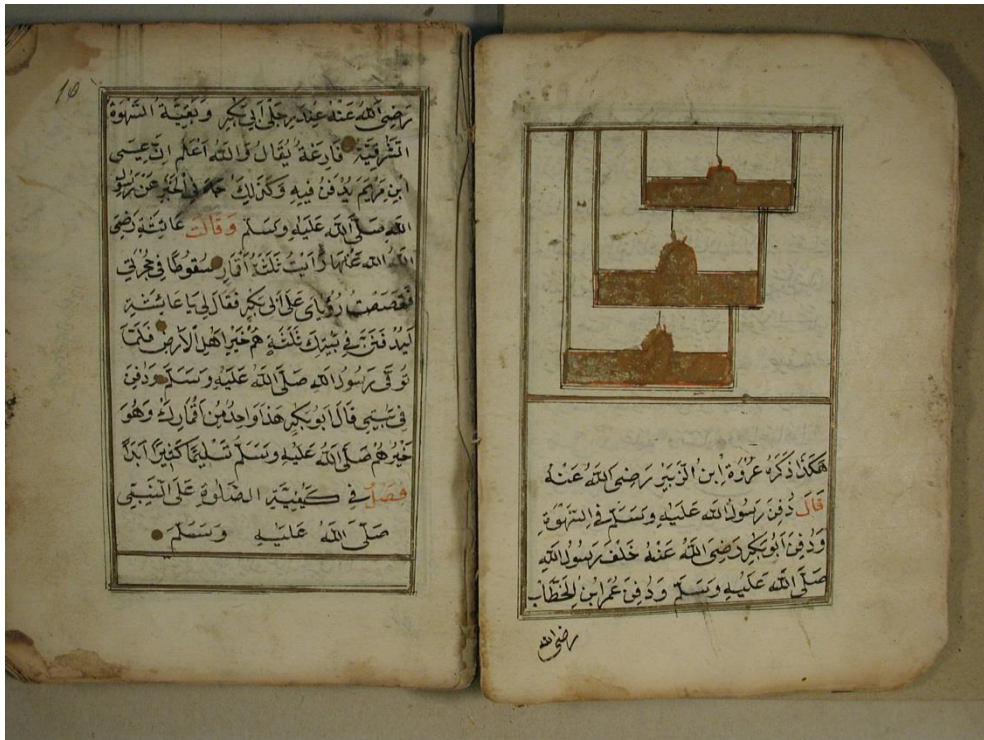 هَكَذَا ذَكَرَهُ عُرْوَةُ ابْنُ الزُّبَيْرِ رَضِيَ اللهُ عَنْهُ
قَالَ دُفِنَ رَسُولُ اللهِ عَلَيْهِ وَسَلَّمَ فِي السَّهْوَةِ
وَدُفِنَ اَبُو بَكْرٍ رَضِيَ اللهُ عَنْهُ خَلْفَ رَسُولِ اللهِ
صَلَّى اللهُ عَلَيْهِ وَسَلَّمَ وَدُفِنَ عُمَرُ ابْنُ الْخَطَّابِ
رضى الله
10
رَضِيَ اللهُ عَنْهُ عِنْدَ رِجْلَيْ اَبِي بَكْرٍ وَبَقِيَّةُ السَّهْوَةِ
الشَّرْقِيَّةُ فَارِغَةٌ يُقَالُ وَاللهُ اَعْلَمُ اِنَّ عِيسَى
ابْنَ مَرْيَمَ يُدْفَنُ فِيهِ وَكَذَلِكَ جَاءَ فِي الْخَبَرِ عَنْ رَسُولِ
اللهِ صَلَّى اللهُ عَلَيْهِ وَسَلَّمَ وَقَالَتْ عَائِشَةُ رَضِيَ
اللهُ عَنْهَا رَاَيْتُ ثَلَثَةَ اَقْمَارٍ سُقُوطًا فِي حُجْرَتِي
فَقَصَصْتُ رُؤْيَايَ عَلَى اَبِي بَكْرٍ فَقَالَ لِي يَا عَائِشَةُ
لَيُدْفَنَنَّ فِي بَيْتِكِ ثَلَثَةٌ هُمْ خَيْرُ اَهْلِ الْاَرْضِ فَلَمَّا
تُوُفِّيَ رَسُولُ اللهِ صَلَّى اللهُ عَلَيْهِ وَسَلَّمَ وَدُفِنَ
فِي بَيْتِي قَالَ اَبُو بَكْرٍ هَذَا وَاحِدٌ مِنْ اَقْمَارِكِ وَهُوَ
خَيْرُهُمْ صَلَّى اللهُ عَلَيْهِ وَسَلَّمَ تَسْلِيمًا كَثِيرًا اَبَدًا
فَصْلٌ فِي كَيْفِيَّةِ الصَّلوةِ عَلَى النَّبِيِّ
صَلَّى اللهُ عَلَيْهِ وَسَلَّمَ